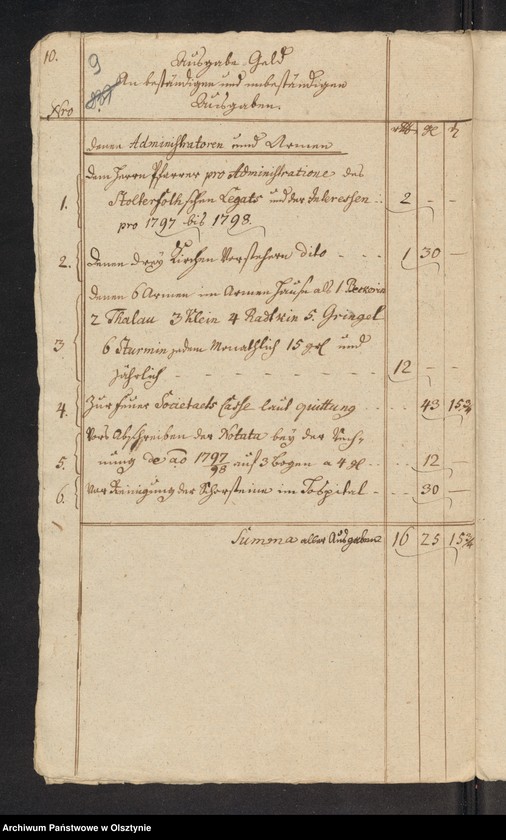 10.
9
Ausgabe Geld
An beständigen und unbeständigen
Ausgaben.
Nro
denen Administratoren und Armen
dem Herrn Pfarrer pro Administratione des
1. Stolterfothschen Legats und der Interessen 2 - -
pro 1797 bis 1798.
2. denen drey Kirchen Vorstehern dito - - - 1 30 -
denen 6 Armen im Armen Hause als 1 Beckerin
2 Thalau 3 Klein 4 Radtkin 5. Gringel
3 6 Sturmin jedem Monathlich 15 gl und
jährlich 12 - -
4. Zur feuer Societaets Casse laut quittung 43 15 3/4
Vors Abschreiben der Notata bey der Rech-
5. nung de ao 1797/98 auf 3 bogen a 4 gl 12
6. Vor Reinigung der Schorsteine im Hospital - 30 -
Summa aller Ausgaben 16 25 15 3/4
Archiwum Państwowe w Olsztynie